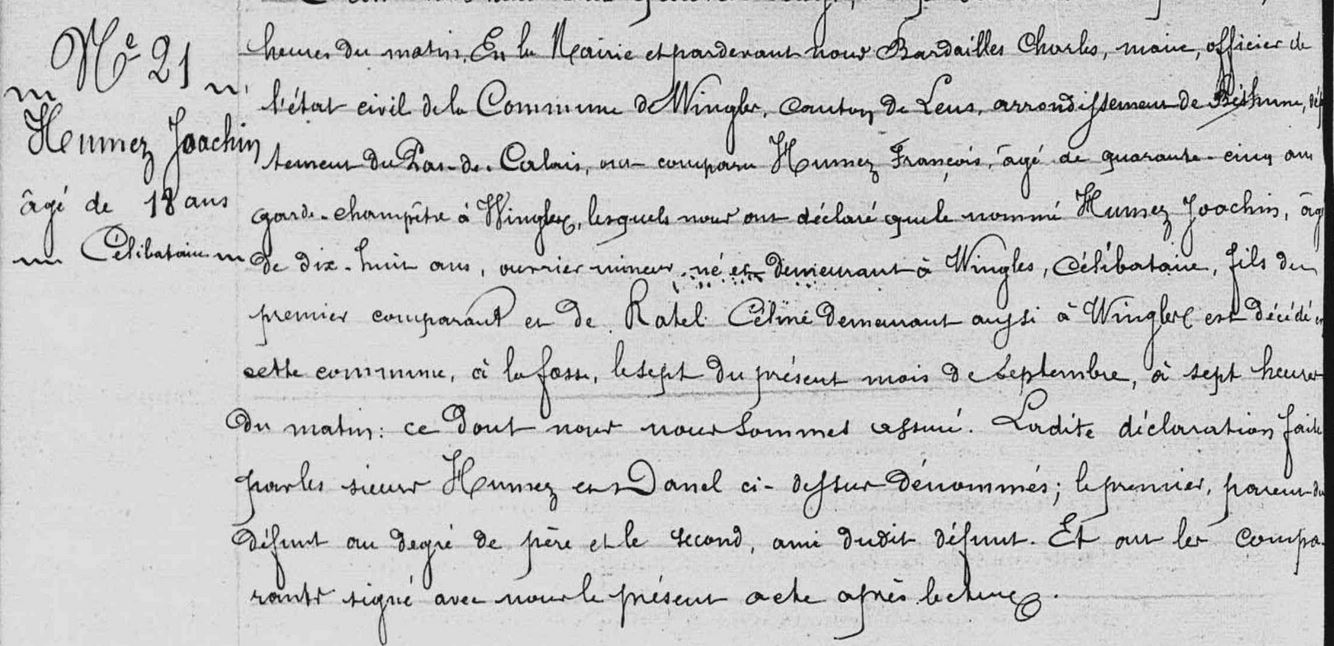 Nº 21
Humez Joachin
âgé de 18 ans
Célibataire
heures du matin. En la Mairie et pardevant nous Bardailles Charles, maire, officier de
l'état civil de la Commune de Wingles, canton de Lens, arrondissement de Béthune, dép
tement du Pas-de-Calais, ont comparu Humez François, âgé de quarante-cinq ans
garde-champêtre à Wingles, lesquels nous ont déclaré que le nommé Humez Joachin, âgé
de dix-huit ans, ouvrier mineur, né et demeurant à Wingles, célibataire, fils du
premier comparant et de Ratel Céline demeurant aussi à Wingles est décédé en
cette commune, à la fosse, le sept du présent mois de Septembre, à sept heures
du matin: ce dont nous nous sommes assuré. Ladite déclaration faite
par les sieurs Humez et Danel ci-dessus dénommés; le premier, parent du
défunt au degré de père et le second, ami dudit défunt. Et ont les compa-
rants signé avec nous le présent acte après lecture.